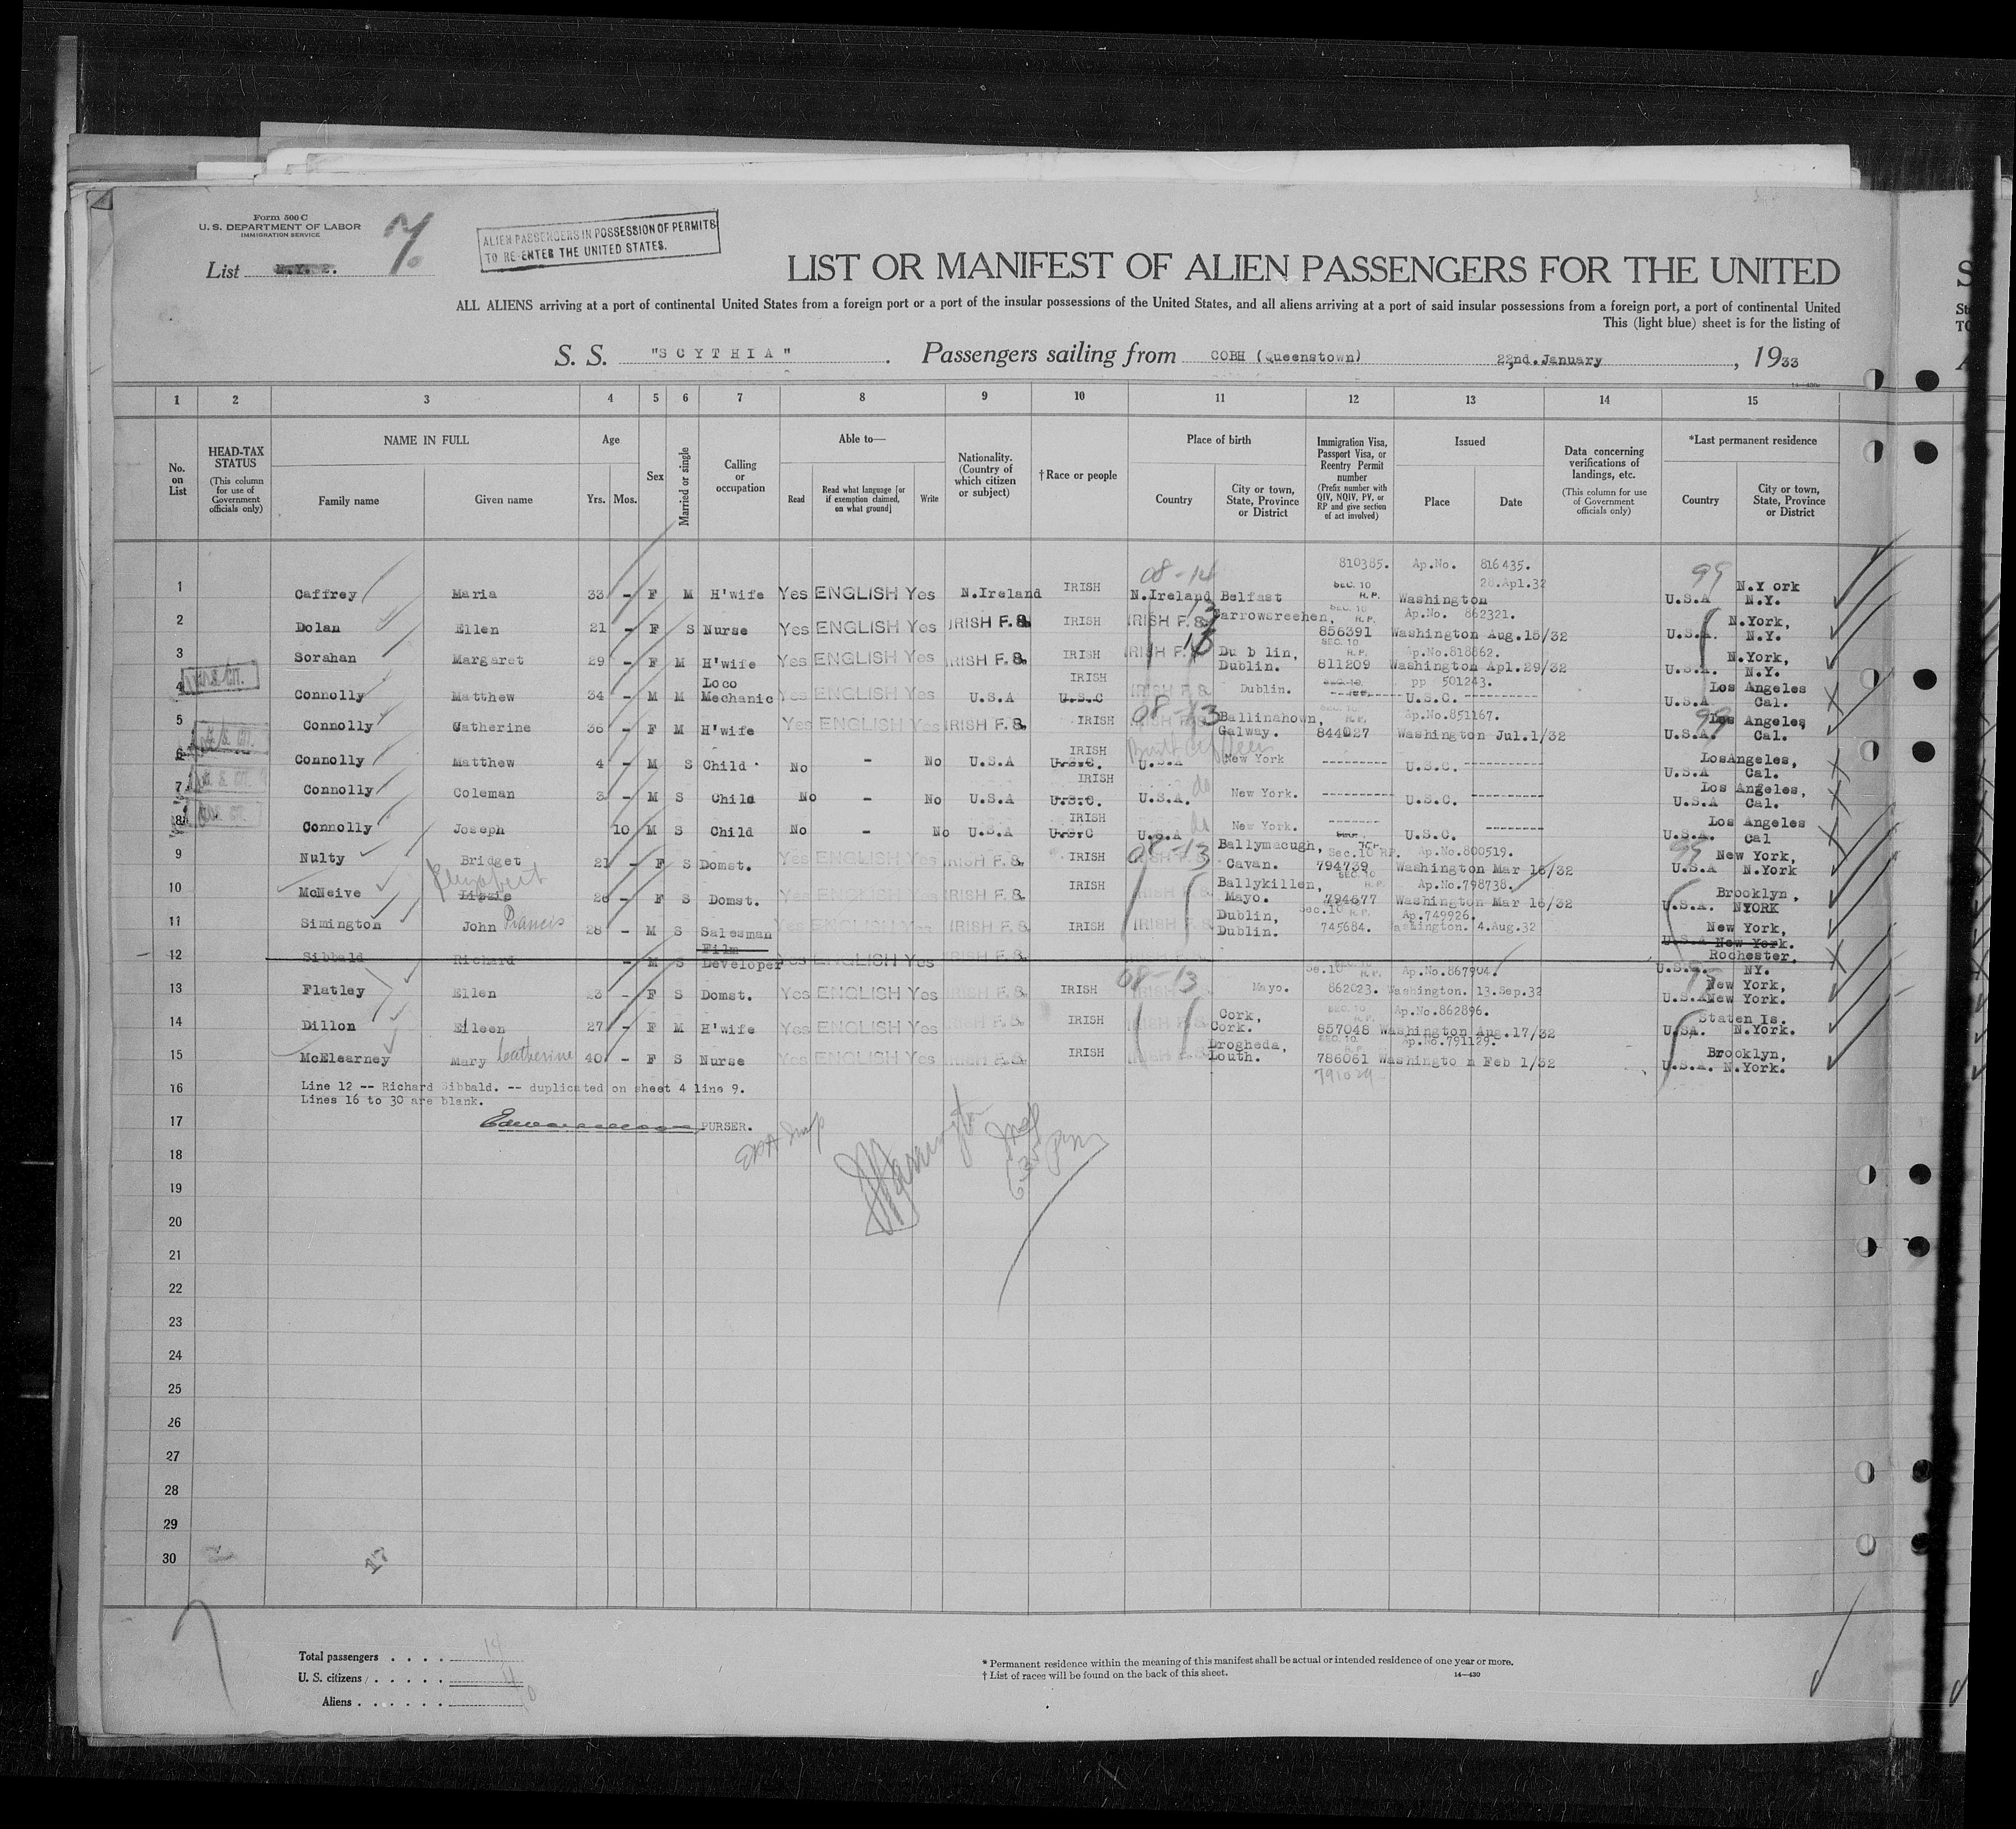 Form 500 C
U. S. DEPARTMENT OF LABOR
IMMIGRATION SERVICE
List N.Y. 2. 7.
ALIEN PASSENGERS IN POSSESSION OF PERMITS
TO RE-ENTER THE UNITED STATES.
LIST OR MANIFEST OF ALIEN PASSENGERS FOR THE UNITED
ALL ALIENS arriving at a port of continental United States from a foreign port or a port of the insular possessions of the United States, and all aliens arriving at a port of said insular possessions from a foreign port, a port of continental United
This (light blue) sheet is for the listing of
S. S. "SCYTHIA". Passengers sailing from COBH (Queenstown) 22nd. January, 1933
14—430c
1 2 3 4 5 6 7 8 9 10 11 12 13 14 15
No. on List
HEAD-TAX STATUS (This column for use of Government officials only)
NAME IN FULL Family name Given name
Age Yrs. Mos.
Sex
Married or single
Calling or occupation
Able to— Read Read what language [or if exemption claimed, on what ground] Write
Nationality. (Country of which citizen or subject)
†Race or people
Place of birth Country City or town, State, Province or District
Immigration Visa, Passport Visa, or Reentry Permit number (Prefix number with QIV, NQIV, PV, or RP and give section of act involved)
Issued Place Date
Data concerning verifications of landings, etc. (This column for use of Government officials only)
*Last permanent residence Country City or town, State, Province or District
08-14 810385. Ap.No. 816435. 99
1 Caffrey Maria 33 - F M H'wife Yes ENGLISH Yes N.Ireland IRISH N.Ireland Belfast SEC. 10 R.P. Washington 28.Apl.32 U.S.A N.York N.Y.
2 Dolan Ellen 21 - F S Nurse Yes ENGLISH Yes IRISH F.S. IRISH IRISH F.S. Carrowsreehen, 13 SEC. 10 R.P. 856391 Ap.No. 862321. Washington Aug.15/32 U.S.A. N.York, N.Y.
3 Sorahan Margaret 29 - F M H'wife Yes ENGLISH Yes IRISH F.S. IRISH IRISH F.S. 13 Dublin, Dublin. SEC. 10 R.P. 811209 Ap.No.818862. Washington Apl.29/32 U.S.A. N.York, N.Y.
U.S. CIT.
4 Connolly Matthew 34 - M M Loco Mechanic Yes ENGLISH Yes U.S.A IRISH U.S.C IRISH F.S. Dublin. SEC. 10. pp 501243. U.S.C. ---------- U.S.A Los Angeles Cal.
5 Connolly Catherine 36 - F M H'wife Yes ENGLISH Yes IRISH F.S. IRISH IRISH F.S. 08-13 Ballinahown, Galway. SEC. 10. R.P. 844027 Ap.No.851167. Washington Jul.1/32 99 U.S.A. Los Angeles, Cal.
U. S. CIT.
6 Connolly Matthew 4 - M S Child No - No U.S.A IRISH U.S.C. U.S.A New York --------- U.S.C. ---------- U.S.A LosAngeles, Cal.
U. S. CIT.
7 Connolly Coleman 3 - M S Child No - No U.S.A IRISH U.S.C. U.S.A. do New York. ---------- U.S.C. ---------- U.S.A Los Angeles, Cal.
U.S. CIT.
8 Connolly Joseph 10 M S Child No - No U.S.A IRISH U.S.C U.S.A do New York. ------- U.S.C. -------- U.S.A. Los Angeles Cal
9 Nulty Bridget 21 - F S Domst. Yes ENGLISH Yes IRISH F.S. IRISH IRISH F.S. 08-13 Ballymacugh, Cavan. Sec.10 RP. 794739 Ap.No.800519. Washington Mar 16/32 99 U.S.A New York, N.York
10 McNeive Lizzie Elizabeth 26 - F S Domst. Yes ENGLISH Yes IRISH F.S. IRISH IRISH F.S. Ballykillen, Mayo. SEC. 10 R.P. 794677 Ap.No.798738. Washington Mar 16/32 U.S.A. Brooklyn, NYORK
11 Simington John Francis 28 - M S Salesman Yes ENGLISH Yes IRISH F.S. IRISH IRISH F.S. Dublin, Dublin. Sec.10 R.P. 745684. Ap.749926. Washington. 4.Aug.32 New York, U.S.A New York.
12 Sibbald Richard - M S Film Developer Yes ENGLISH Yes IRISH F.S. Rochester, U.S.A. NY.
13 Flatley Ellen 23 - F S Domst. Yes ENGLISH Yes IRISH F.S. IRISH IRISH F.S. 08-13 Mayo. Se.10 R.P. 862023. Ap.No.867904. Washington. 13.Sep.32 U.S.A New York, New York.
14 Dillon Eileen 27 - F M H'wife Yes ENGLISH Yes IRISH F.S. IRISH IRISH F.S. Cork, Cork. SEC. 10. R.P. 857048 Ap.No.862896. Washington Aug.17/32 USA. Staten Is. N.York.
15 McElearney Mary Catherine 40 - F S Nurse Yes ENGLISH Yes IRISH F.S. IRISH IRISH F.S. Drogheda, Louth. SEC. 10. R.P. 786061 Ap.No.791129. Washington Feb 1/32 U.S.A. Brooklyn, N.York.
791029
16 Line 12 -- Richard Sibbald. -- duplicated on sheet 4 line 9.
Lines 16 to 30 are blank.
17 PURSER.
18
19
20
21
22
23
24
25
26
27
28
29
30
17
Total passengers . . . . 14
U. S. citizens . . . . . 4
Aliens . . . . . . 10
* Permanent residence within the meaning of this manifest shall be actual or intended residence of one year or more.
† List of races will be found on the back of this sheet.
14—430